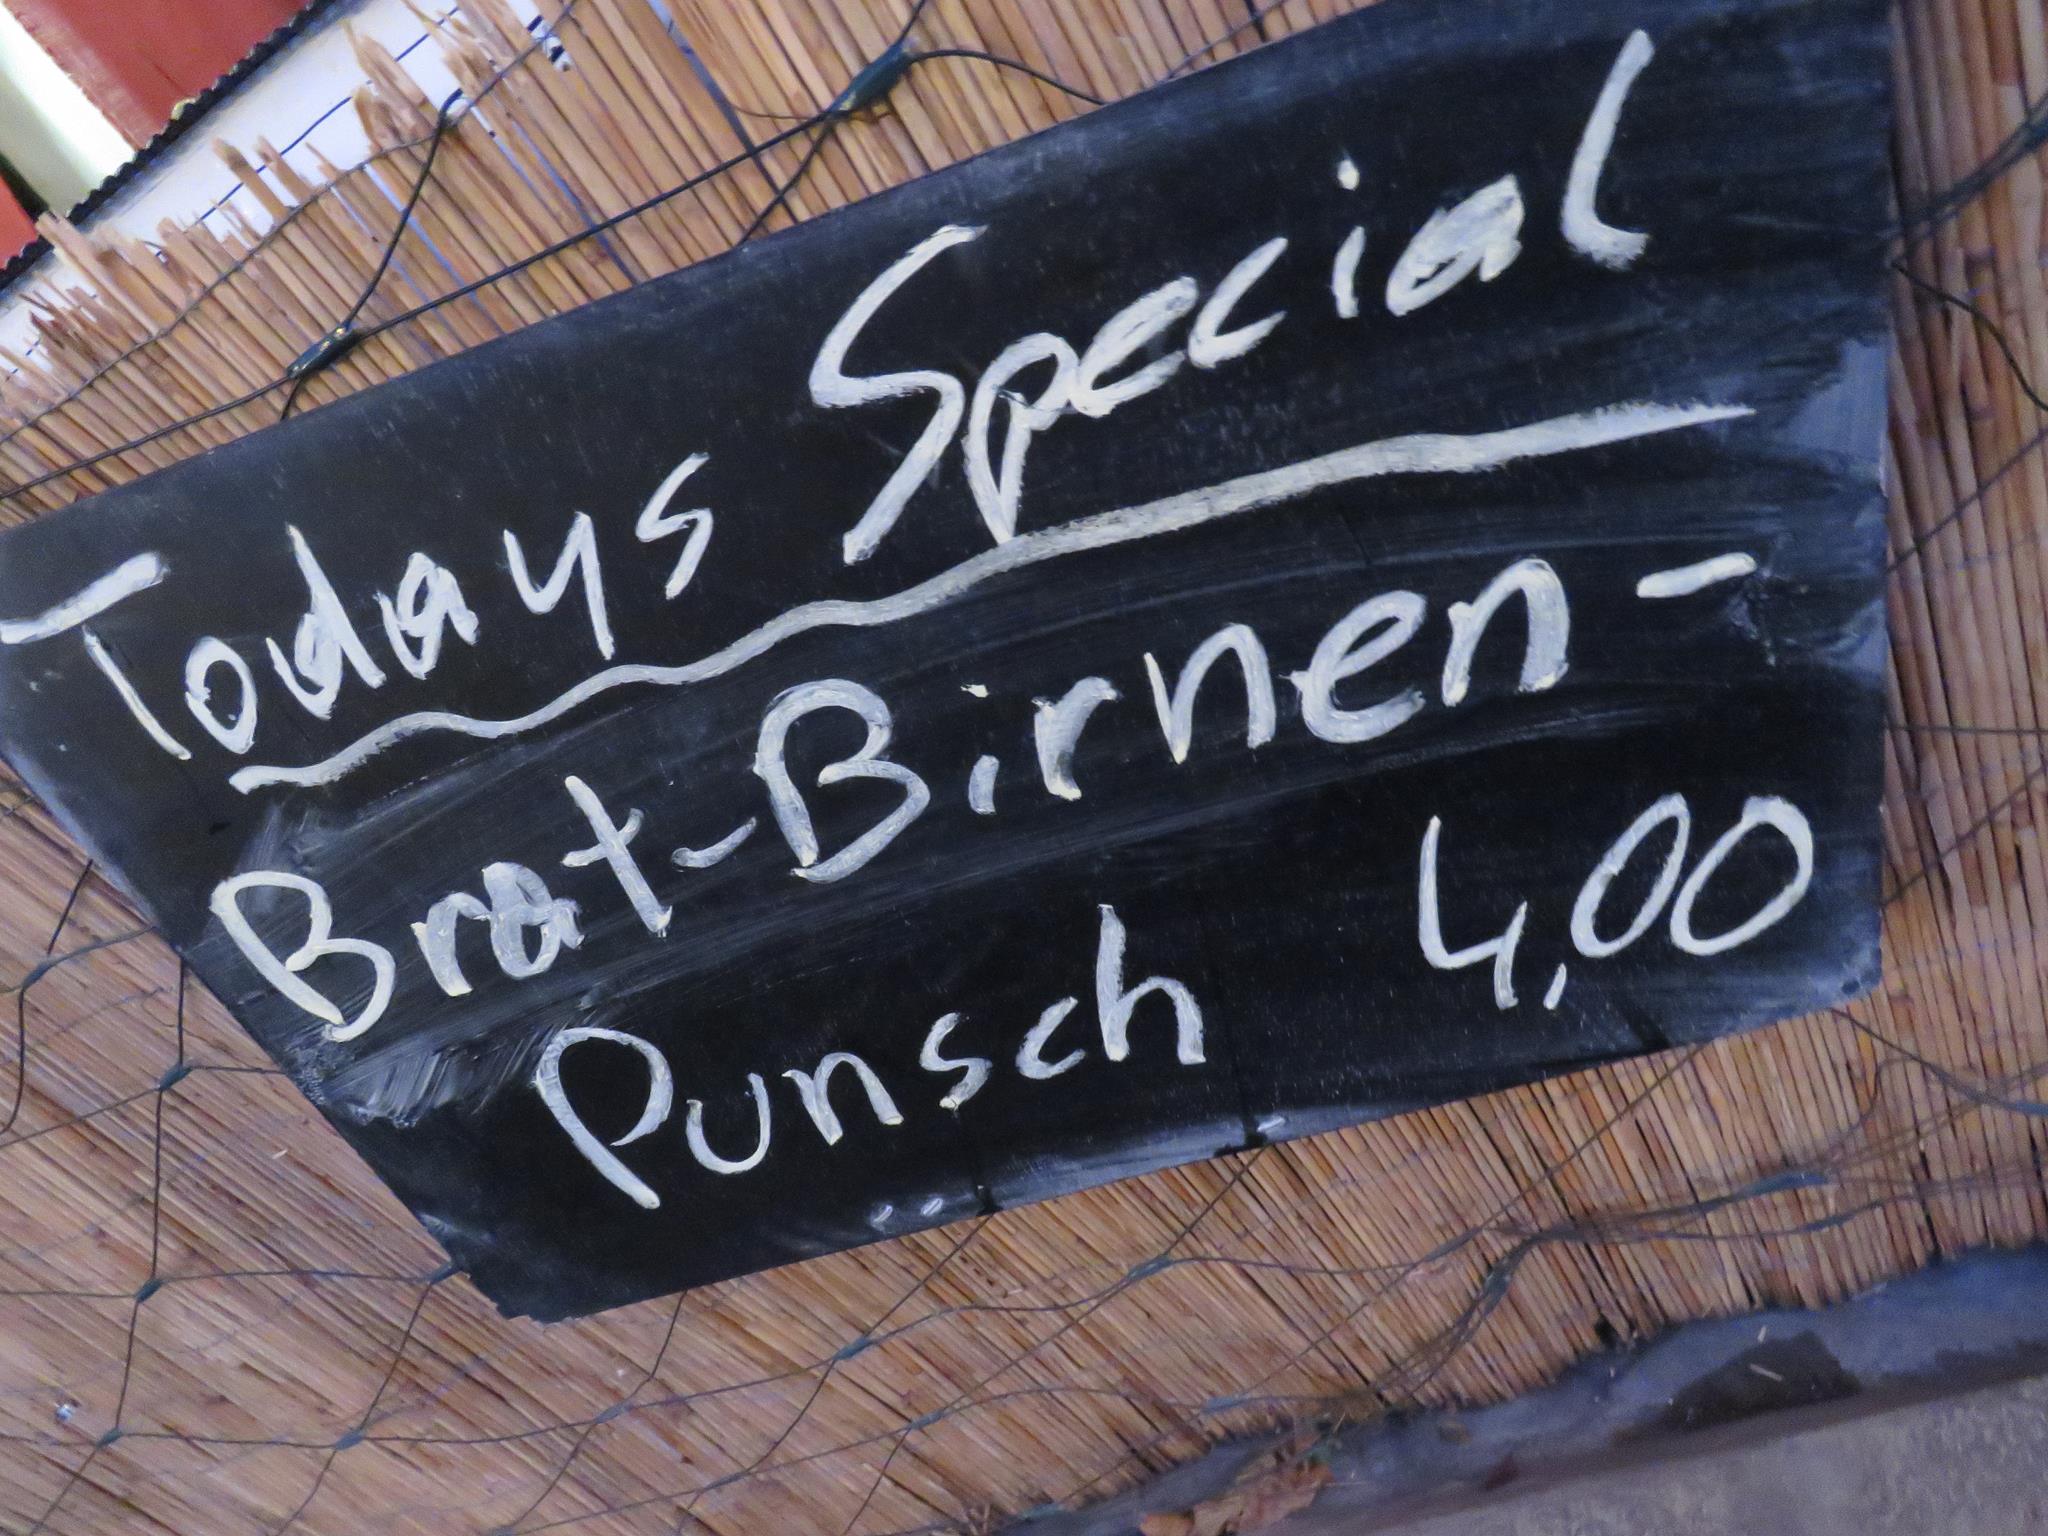 Todays Special
Brat-Birnen-
Punsch 4,00